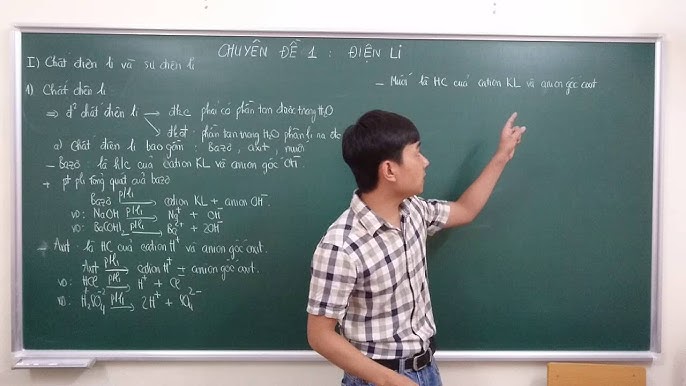 CHUYÊN ĐỀ 1 : ĐIỆN LI
I) Chất điện li và sự điện li
1) Chất điện li :
⇒ đ² chất điện li → đkc phải có phân tan được trong H₂O
→ đkđ : phân tan trong H₂O phân li ra
a) Chất điện li bao gồm : Bazơ , axit , muối
- Bazơ : là h/c của cation KL và anion gốc OH⁻.
+ pt pli tổng quát của bazơ
Bazơ pli→ cation KL + anion OH⁻.
VD: NaOH pli→ Na⁺ + OH⁻
VD: Ba(OH)₂ pli→ Ba²⁺ + 2OH⁻
- Axit là HC của cation H⁺ và anion gốc axit.
Axit pli→ cation H⁺ + anion gốc axit.
VD: HCl pli→ H⁺ + Cl⁻
VD: H₂SO₄ pli→ 2H⁺ + SO₄²⁻
- Muối là HC của cation KL và anion gốc axit